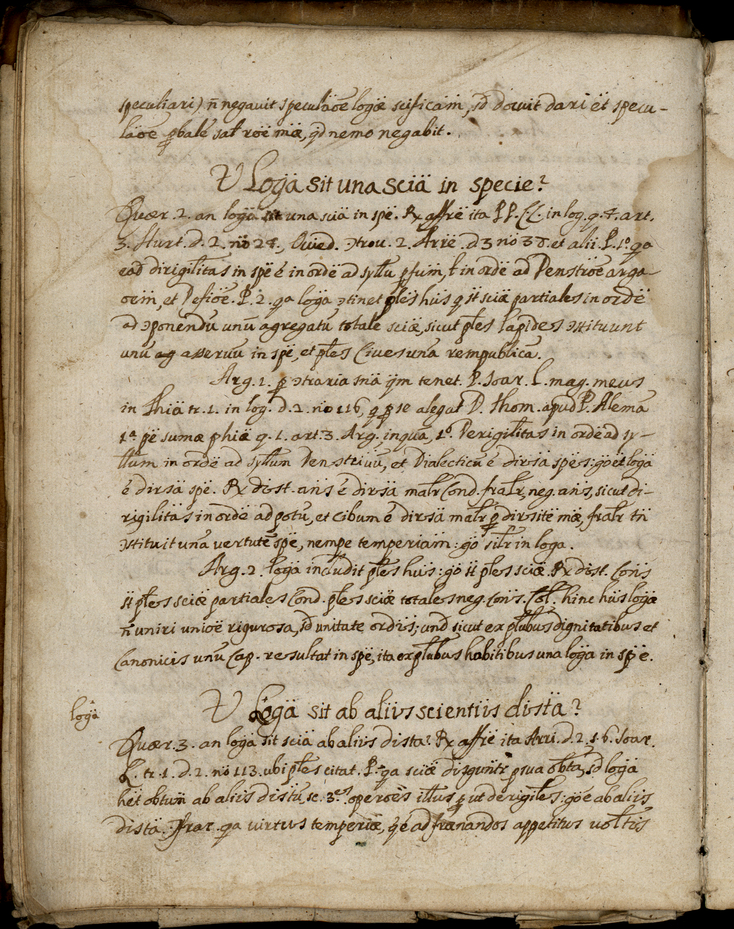 speculiari) n̄ negavit speculãoẽ logæ scificam, sd docuit dari et specu-
lãoẽ pbalẽ salt roẽ mæ, qd nemo negabit.
V Logã sit una sciã in specie?
Quær. 2. an logã sit una sciã in spẽ. Rx affrẽ ita PP. CC. in log. q. 4. art.
3. Hurt. d. 2. no 28, Ovied. Ↄtrov. 2. Arrie. d 3 no 38. et alii. P. 1ª. qa
ead dirigilitas in spẽ ẽ in ordẽ ad syllu in ordẽ ad Denstroẽ arga-
oẽm, et Defioẽ. P. 2. qa logã Ↄtinet ples huis q st sciæ partiales in ordẽ
ad Ↄponendu unũ agregatũ totale sciæ, sicut ples lapides Ↄstituunt
unũ ag asseruũ in spẽ, et ples Cives una rempublica.
Arg. 1. p Ↄtraria sñia qm tenet. P. Soar. L. mag. meus
in Phiã tr. 1. in log. d. 2. no 116, q p se alegat D. Thom. apud P. Alema
1ª pẽ sumæ phiæ q. 1. art. 3. Arg. in qua, 1º. Derigilitas in ordẽ ad sy-
llum in ordẽ ad syllum Denstrivũ, et Dialecticũ ẽ dirsã spẽs: go et logã
ẽ dirsã spẽ. Rx dist. ans ẽ dirsã malr Cond. fralr, neg. ans, sicut di-
rigilitas in ordẽ ad potũ, et cibum ẽ dirsã malr p dirsitẽ mæ, fralr tn
Ↄstituit una vertutẽ spẽ, nempe temperiam: go silr in loga.
Arg. 2. logã includit ples huis: go st ples sciæ. Rx dist. Cons
st ples sciæ partiales Cond. ples sciæ totales neg. Cons. Col. hinc huis logæ
n̄ uniri unioẽ rigurosa, sd unitate ordis; und sicut ex plubus dignitatibus et
Canonicis unũ Cap. resultat in spẽ, ita ex plubus habitibus una logã in spẽ.
logã
V Logã sit ab aliis scientiis dista?
Quær. 3. an logã sit sciã ab aliis dista? Rx affrẽ ita Arri. d. 2. s. 6. Soar.
L. tr. 1. d. 2. no 113. ubi ples citat. P. qa sciæ disguntr p sua obta, sd logã
het obtum ab aliis distũ, sc. 3es operoẽs illus p ut derigiles: go ẽ ab aliis
dista. frar. qa virtus temperiæ, q ẽ ad frænandos appetitus voltis